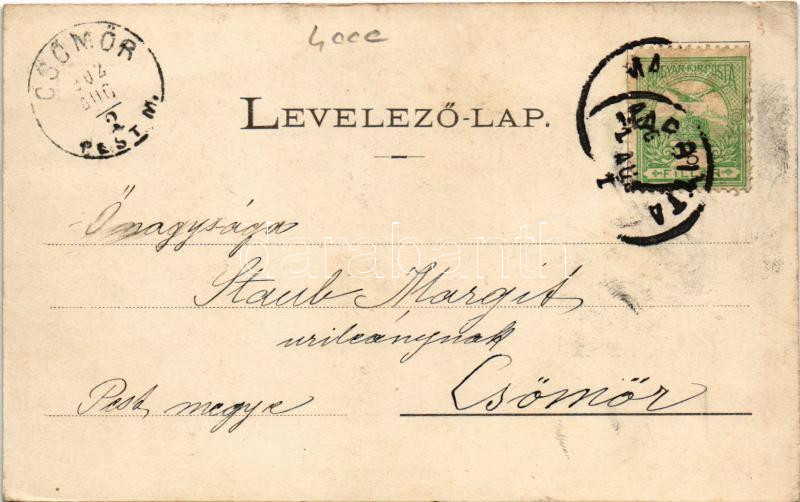 4000
CSÖMÖR
902
AUG
2
PEST M.
MAGYAR KIR. POSTA
FILLÉR
LEVELEZŐ-LAP.
Őnagysága
Staub Margit
urileánynak
Pest megye
Csömör
darabanth